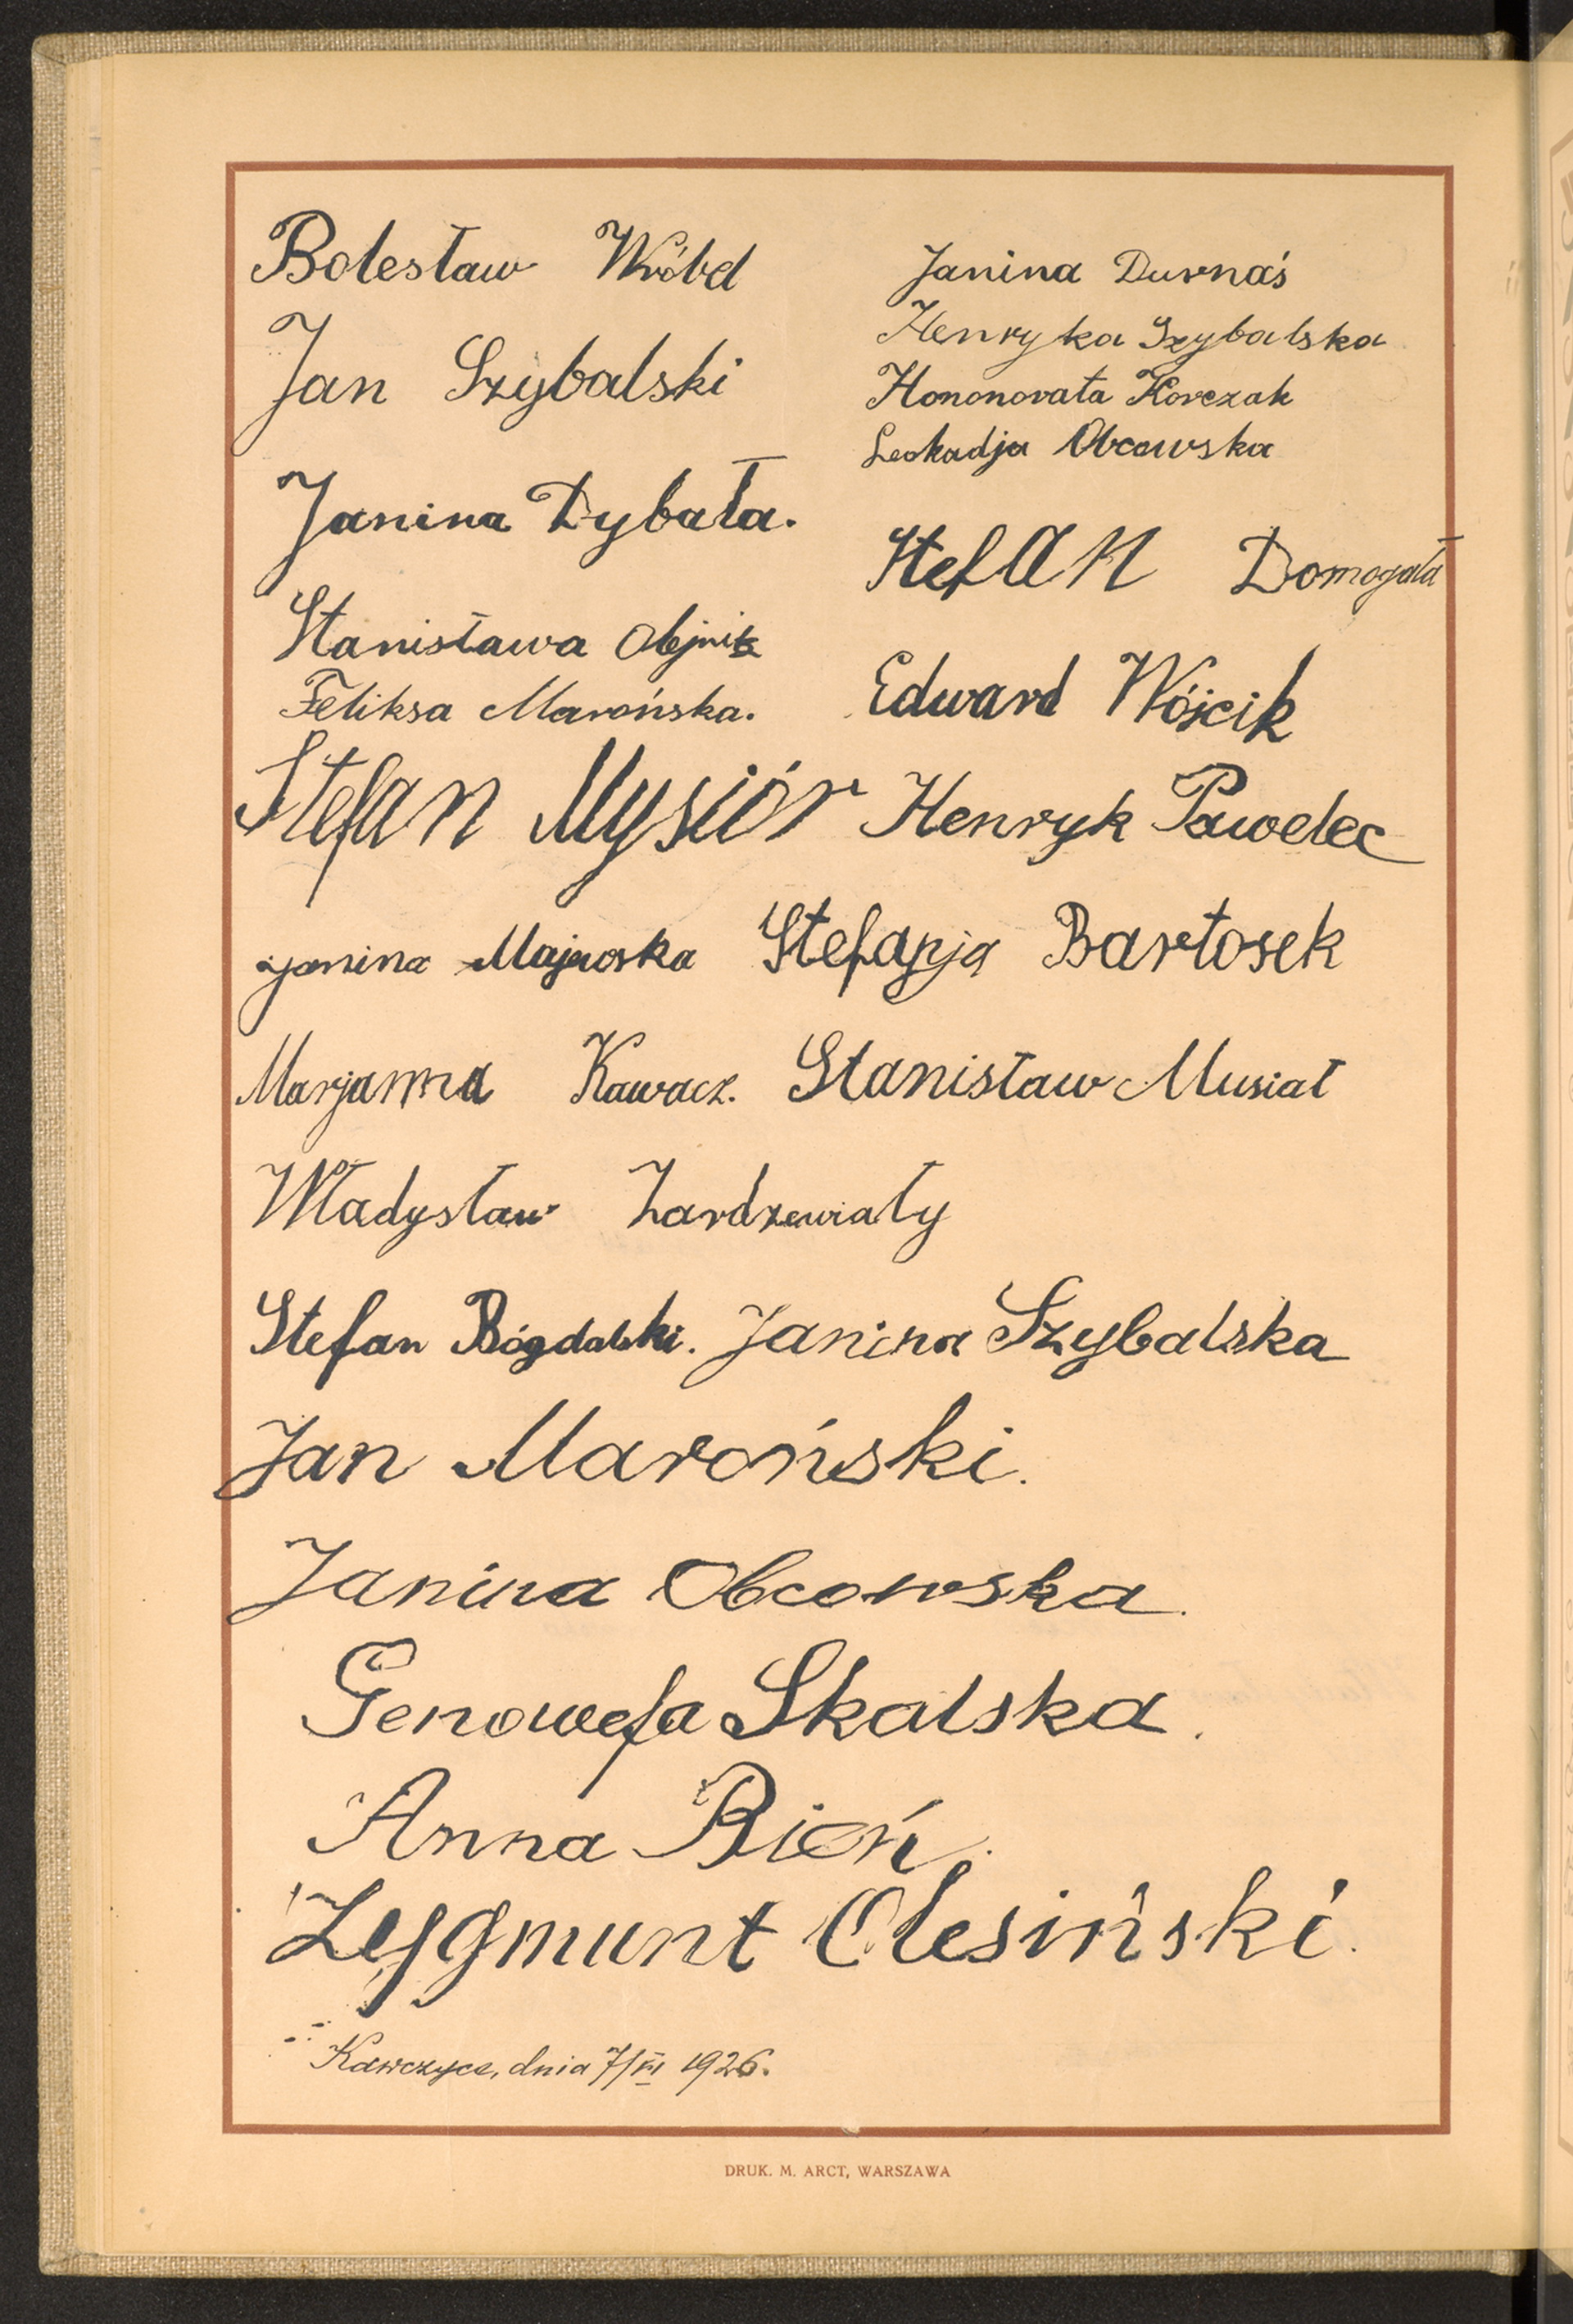 Bolesław Wróbel
Janina Durnaś
Jan Szybalski
Henryka Szybalska
Hononorata Korczak
Leokadja Obcowska
Janina Dybała.
Stefan Domogała
Stanisława Olejnik
Feliksa Marońska.
Edward Wójcik
Stefan Mysiór Henryk Pawelec
Janina Majewska Stefanja Bartosek
Marjanna Kawacz. Stanisław Musiał
Władysław Zardzewiały
Stefan Bógdalski. Janina Szybalska
Jan Maroński.
Janina Obcowska.
Genowefa Skalska.
Anna Bień.
Zygmunt Olesiński.
Kawczyce, dnia 7/VI 1926.
DRUK. M. ARCT, WARSZAWA